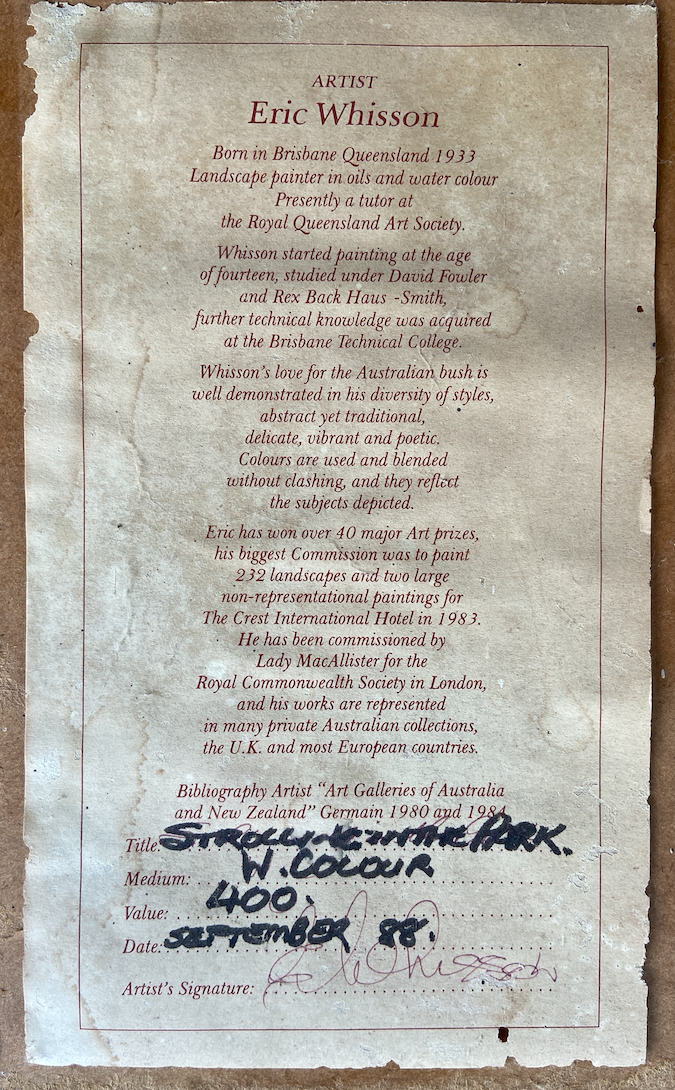 ARTIST
Eric Whisson
Born in Brisbane Queensland 1933
Landscape painter in oils and water colour
Presently a tutor at
the Royal Queensland Art Society.
Whisson started painting at the age
of fourteen, studied under David Fowler
and Rex Back Haus -Smith,
further technical knowledge was acquired
at the Brisbane Technical College.
Whisson's love for the Australian bush is
well demonstrated in his diversity of styles,
abstract yet traditional,
delicate, vibrant and poetic.
Colours are used and blended
without clashing, and they reflect
the subjects depicted.
Eric has won over 40 major Art prizes,
his biggest Commission was to paint
232 landscapes and two large
non-representational paintings for
The Crest International Hotel in 1983.
He has been commissioned by
Lady MacAllister for the
Royal Commonwealth Society in London,
and his works are represented
in many private Australian collections,
the U.K. and most European countries.
Bibliography Artist "Art Galleries of Australia
and New Zealand" Germain 1980 and 1984
Title: STROLLING IN THE PARK.
Medium: W. COLOUR
Value: 400.
Date: SEPTEMBER 88.
Artist's Signature: E Whisson